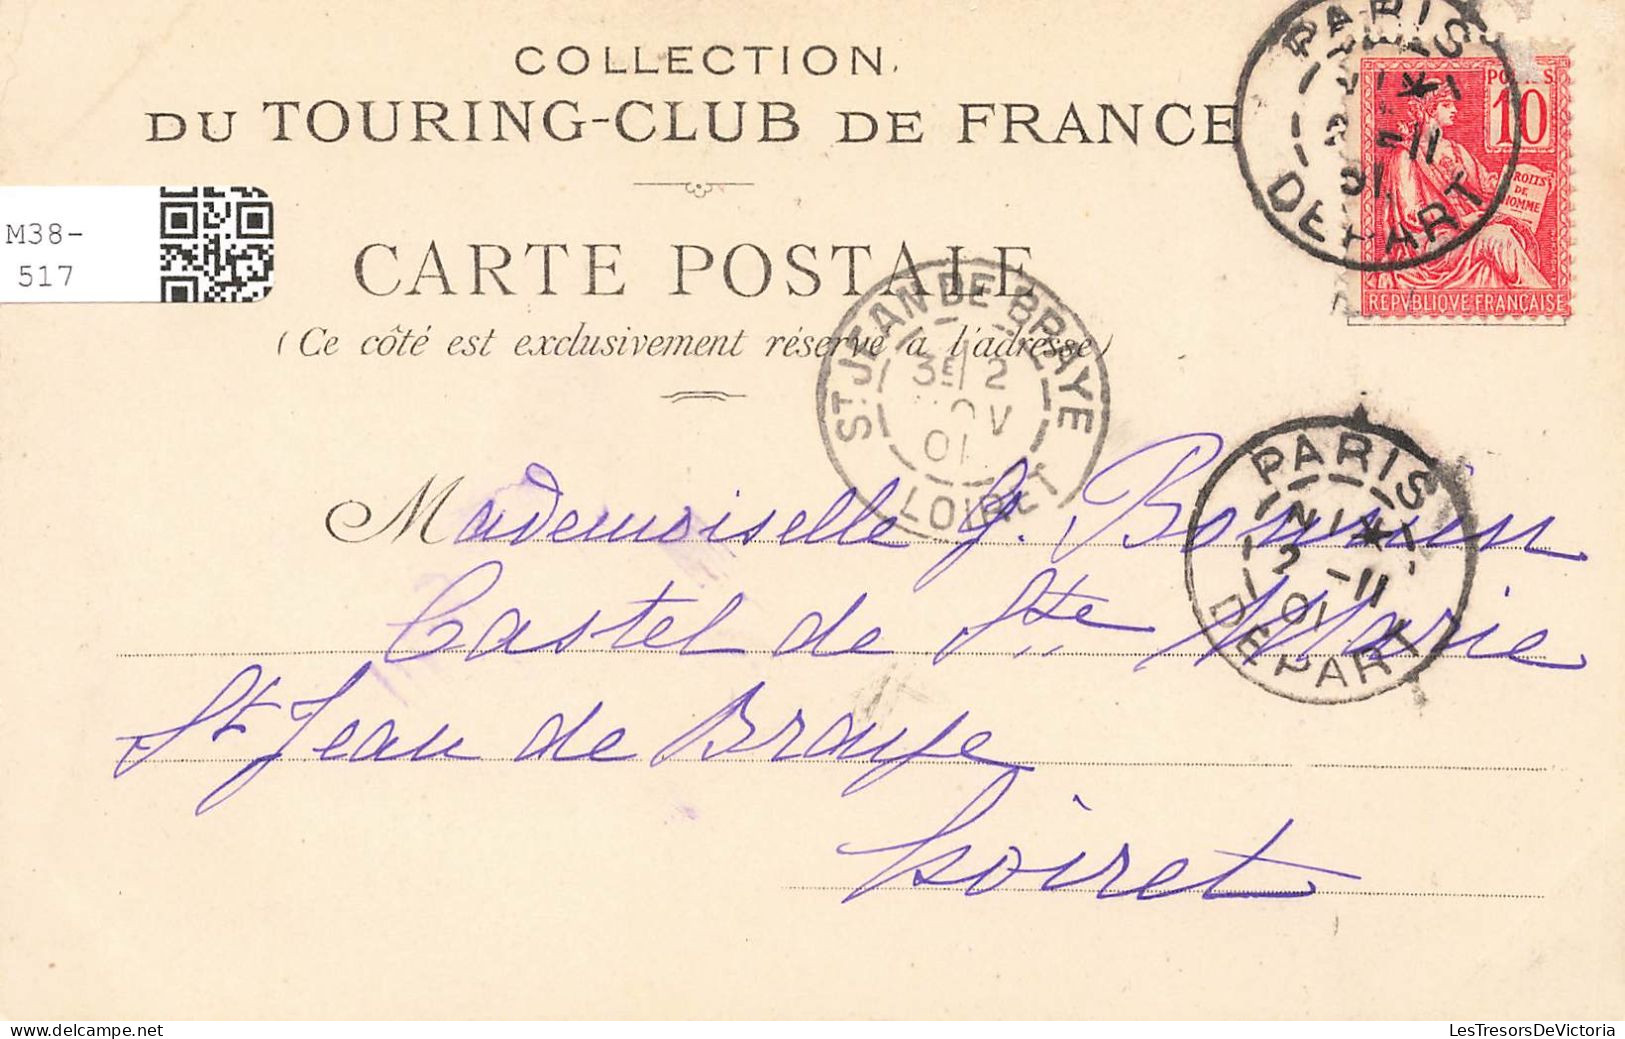 COLLECTION
DU TOURING-CLUB DE FRANCE
CARTE POSTALE
(Ce côté est exclusivement réservé à l'adresse)
M38-
517
PARIS
-11
01
DEPART
POSTES
10
DROITS
DE
HOMME
REPVBLIQVE FRANÇAISE
ST JEAN DE BRAYE
3E 2
NOV
01
LOIRET
PARIS
2 -11
01
DEPART
Mademoiselle G.
Castel de Ste Marie
St Jean de Braye
Loiret
LesTresorsDeVictoria